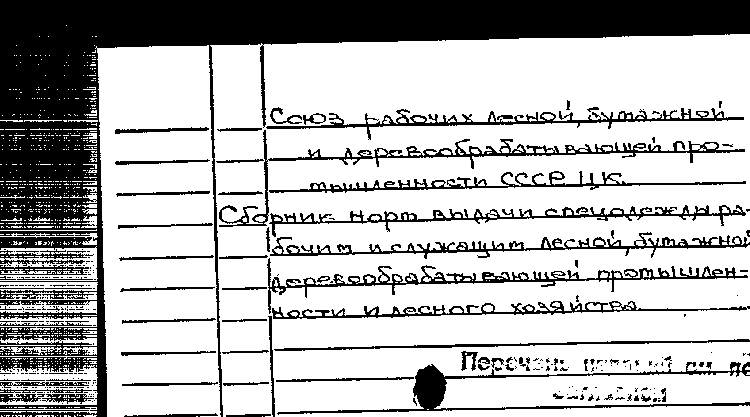 Союз рабочих лесной, бумажной
и деревообрабатывающей про-
мышленности СССР. ЦК.
Сборник норм выдачи спецодежды ра-
бочим и служащим лесной, бумажной
деревообрабатывающей промышлен-
ности и лесного хозяйства
Перечень изданий см. на